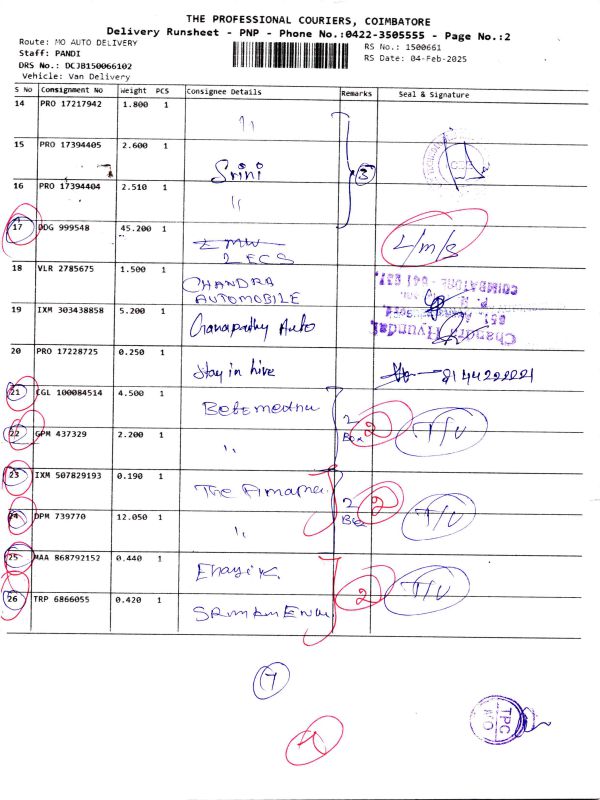 THE PROFESSIONAL COURIERS, COIMBATORE
Delivery Runsheet - PNP - Phone No.:0422-3505555 - Page No.:2
Route: MO AUTO DELIVERY
Staff: PANDI
DRS No.: DCJB150066102
Vehicle: Van Delivery
RS No.: 1500661
RS Date: 04-Feb-2025
S No Consignment No Weight PCS Consignee Details Remarks Seal & Signature
14 PRO 17217942 1.800 1 "
15 PRO 17394405 2.600 1 Srini 3
16 PRO 17394404 2.510 1 "
17 DDG 999548 45.200 1 ZMW L/m/s
ZECS
18 VLR 2785675 1.500 1 CHANDRA
AUTOMOBILE
COIMBATORE - 641 037.
19 IXM 303438858 5.200 1 Ganapathy Auto
Chandra Hyundai
20 PRO 17228725 0.250 1 Stay in hive
21 CGL 100084514 4.500 1
22 GPM 437329 2.200 1 " 2 Box 2 T/U
23 IXM 507829193 0.190 1 The
24 DPM 739770 12.050 1 " 2 Box 2 T/U
25 MAA 868792152 0.440 1
26 TRP 6866055 0.420 1 2 T/U
7
TPC
H/O